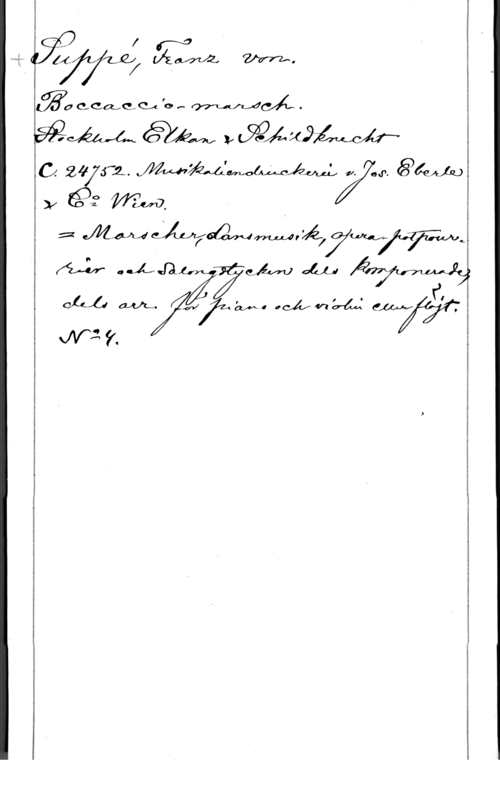 Suppé, Franz von.
Boccaccio-marsch.
Stockholm Elkan & Schildknecht
C. 24752. Musikaliendruckerei v. Jos. Eberle
& Co Wien.
= Marscher, dansmusik, opera-potpour-
rier och salongstycken dels komponerade,
dels arr. för piano och violin eller flöjt.
No 4.